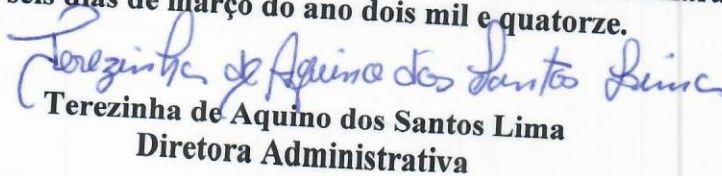 seis dias de março do ano dois mil e quatorze.
Terezinha de Aquino dos Santos Lima
Terezinha de Aquino dos Santos Lima
Diretora Administrativa